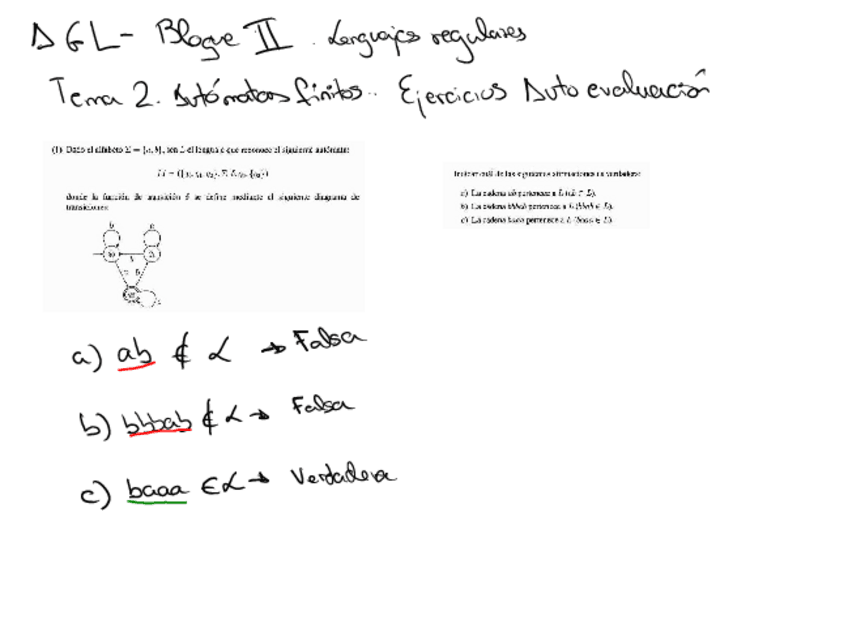 AGL - Bloque II. Lenguajes regulares
Tema 2. Autómatas finitos. Ejercicios Autoevaluación
(1) Dado el alfabeto Σ = {a, b}, sea L el lenguaje que reconoce el siguiente autómata:
donde la función de transición δ se define mediante el siguiente diagrama de
transiciones:
Indicar cuál de las siguientes afirmaciones es verdadera:
a) La cadena ab pertenece a L (ab ∈ L).
b) La cadena bbbab pertenece a L (bbbab ∈ L).
c) La cadena baaa pertenece a L (baaa ∈ L).
a) ab ∉ L → Falsa
b) bbbab ∉ L → Falsa
c) baaa ∈ L → Verdadera